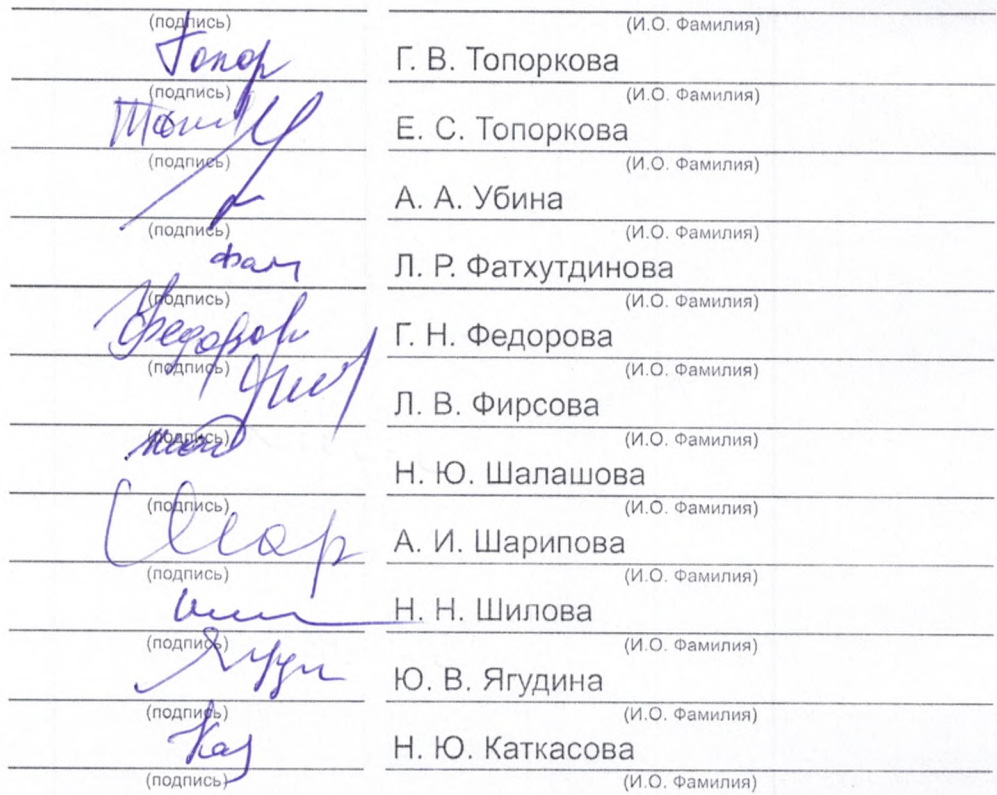 (подпись) (И.О. Фамилия)
Топор Г. В. Топоркова
(подпись) (И.О. Фамилия)
Е. С. Топоркова
(подпись) (И.О. Фамилия)
А. А. Убина
(подпись) (И.О. Фамилия)
Фат Л. Р. Фатхутдинова
(подпись) (И.О. Фамилия)
Федоров Г. Н. Федорова
(подпись) (И.О. Фамилия)
Л. В. Фирсова
(подпись) (И.О. Фамилия)
Н. Ю. Шалашова
(подпись) (И.О. Фамилия)
Шар А. И. Шарипова
(подпись) (И.О. Фамилия)
Н. Н. Шилова
(подпись) (И.О. Фамилия)
Ягуд Ю. В. Ягудина
(подпись) (И.О. Фамилия)
Кат Н. Ю. Каткасова
(подпись) (И.О. Фамилия)